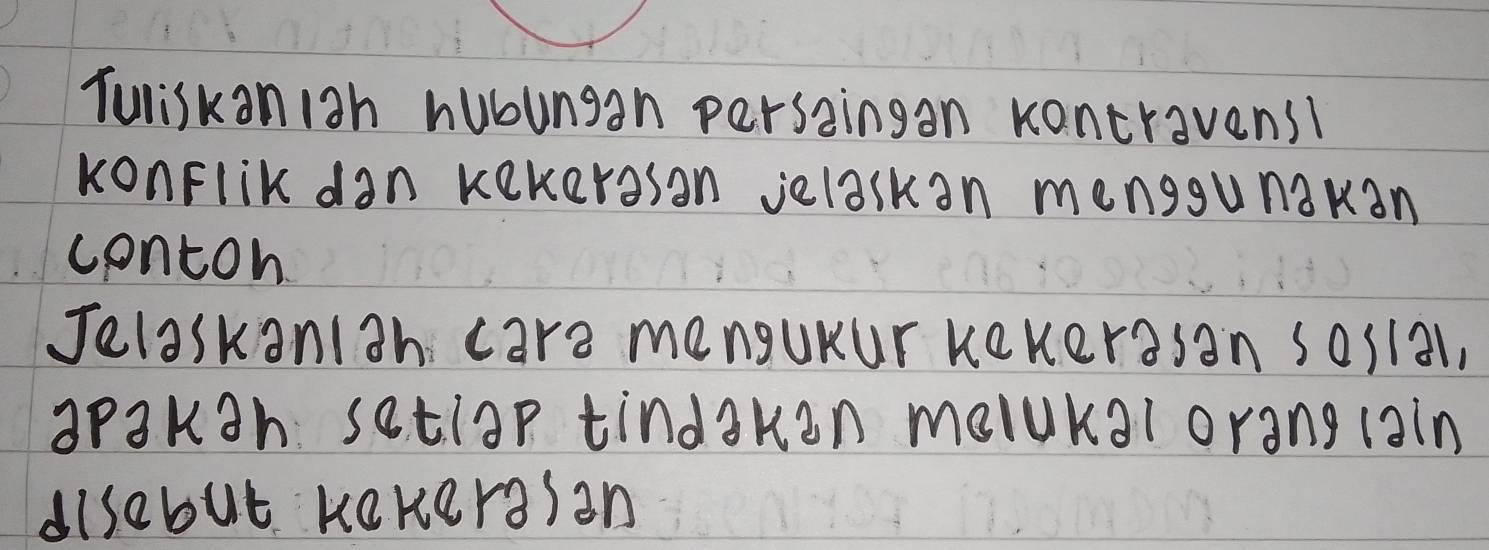 Tuliskanlah hubungan persaingan kontravensi
konflik dan kekerasan jelaskan menggunakan
contoh
Jelaskanlah cara mengukur kekerasan sosial,
apakah setiap tindakan melukai orang lain
disebut kekerasan